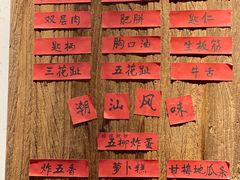 双层肉 肥胼 匙仁
匙柄 胸口油 生板筋
三花趾 五花趾 牛舌
潮汕风味
五柳炸蛋
炸五香 萝卜糕 甘梅地瓜条